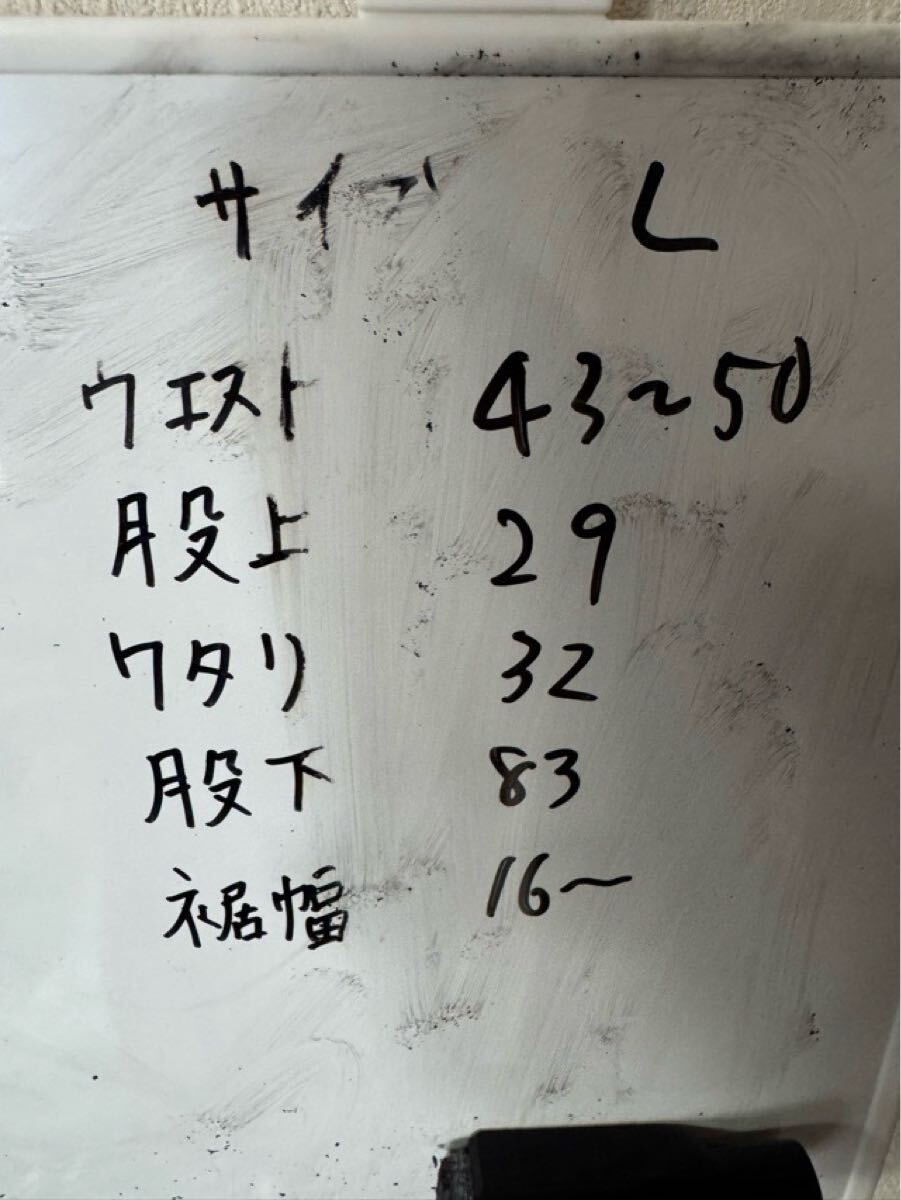 サイズ L
ウエスト 43~50
股上 29
ワタリ 32
股下 83
裾幅 16~